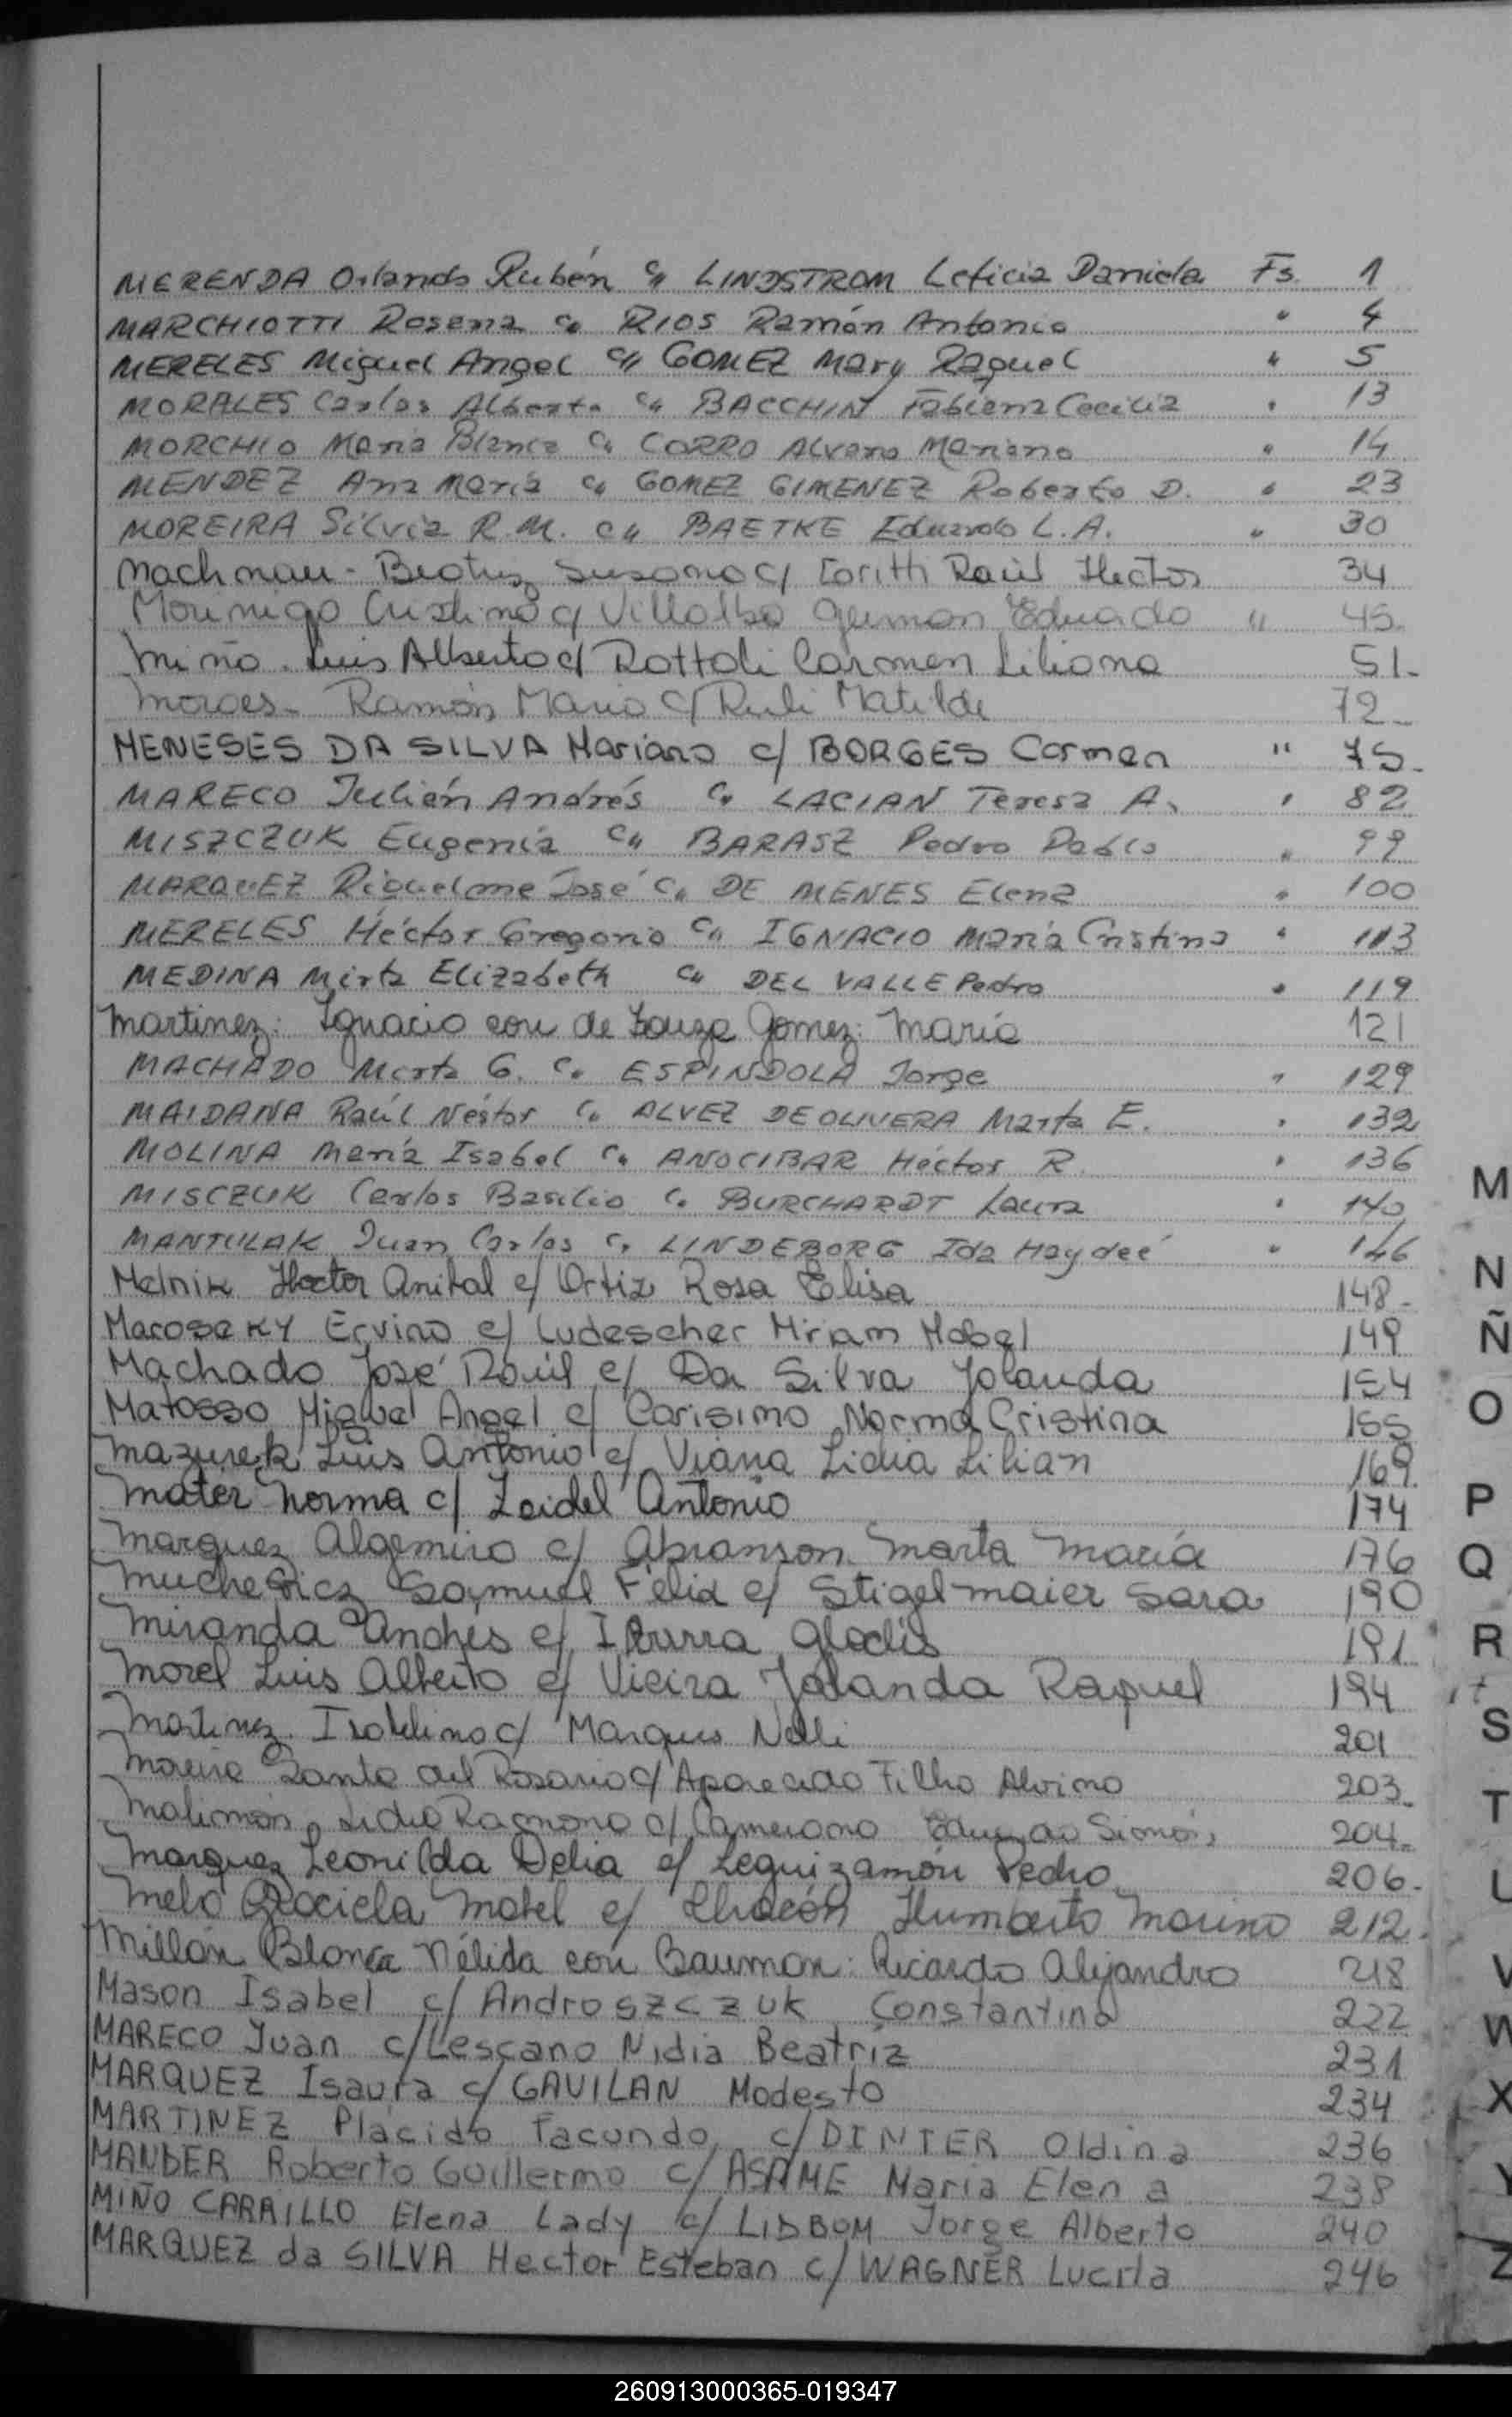 MERENDA Orlando Rubén c/ LINDSTROM Leticia Daniela Fs. 1
MARCHIOTTI Rosena c/ RIOS Ramón Antonio " 4
MERELES Miguel Angel c/ GOMEZ Mary Raquel " 5
MORALES Carlos Alberto c/ BACCHIN Fabiena Cecilia " 13
MORCHIO Maria Blanca c/ CORRO Alvaro Mariano " 14
MENDEZ Ana María c/ GOMEZ GIMENEZ Roberto D. " 23
MOREIRA Silvia R.M. c/ BAETKE Eduardo L.A. " 30
Beatriz Susana c/ Raúl Hector 34
Mourinigo Cristina c/ Villalba German Eduardo " 45.
Miño. Luis Alberto c/ Rottoli Carmen Liliana 51-
Moraes- Ramón Mario c/ Matilde 72-
MENESES DA SILVA Mariano c/ BORGES Carmen " 75-
MARECO Julián Andrés c/ LACIAN Teresa A. " 82
MISZCZUK Eugenia c/ BARASZ Pedro Pablo " 99
MARQUEZ Riquelme José c/ DE MENES Elena " 100
MERELES Héctor Gregorio c/ IGNACIO María Cristina " 113
MEDINA Mirta Elizabeth c/ DEL VALLE Pedro " 119
Martinez: Ignacio con de Souza Gomez: Maria 121
MACHADO Marta G. c/ ESPINDOLA Jorge " 129
MAIDANA Raúl Néstor c/ ALVEZ DE OLIVERA Marta E. " 132
MOLINA María Isabel c/ ANOCIBAR Héctor R. " 136
MISCZUK Carlos Basilio c/ BURCHARDT Laura " 140
MANTULAK Juan Carlos c/ LINDEBORG Ida Haydeé " 146
Melnik Hector Anibal c/ Ortiz Rosa Elisa 148-
Maroseky Ervino c/ Ludescher Miriam Mabel 149
Machado José Raúl c/ Da Silva Yolanda 154
Matosso Miguel Angel c/ Carisimo Norma Cristina 155
Mazurek Luis Antonio c/ Viana Lidia Lilian 169
Mater Norma c/ Zeidel Antonio 174
Marquez Algemiro c/ Abranson Marta María 176
Samuel Felix c/ Stigelmaier Sara 190
Miranda Andres c/ Ibarra Gladis 191
Morel Luis Alberto c/ Vieira Yolanda Raquel 194
Martinez. Isabelino c/ Marques Nelli 201
Moreira Santa del Rosario c/ Aparecido Filho Alvino 203-
Ramona c/ Eduardo Simón 204-
Marquez Leonilda Delia c/ Leguizamón Pedro 206-
Melo Graciela Mabel c/ Chacón Humberto Marino 212-
Millán Blanca Nélida con Bauman: Ricardo Alejandro 218
Mason Isabel c/ Androszczuk Constantino 222
MARECO Juan c/ Lescano Nidia Beatriz 231
MARQUEZ Isaura c/ GAVILAN Modesto 234
MARTINEZ Placido Facundo c/ DINTER Oldina 236
MANDER Roberto Guillermo c/ ASAME Maria Elena 238
MIÑO CARRILLO Elena Lady c/ LISBOM Jorge Alberto 240
MARQUEZ da SILVA Hector Esteban c/ WAGNER Lucila 246
M
N
Ñ
O
P
Q
R
S
T
U
V
W
X
Y
Z
260913000365-019347